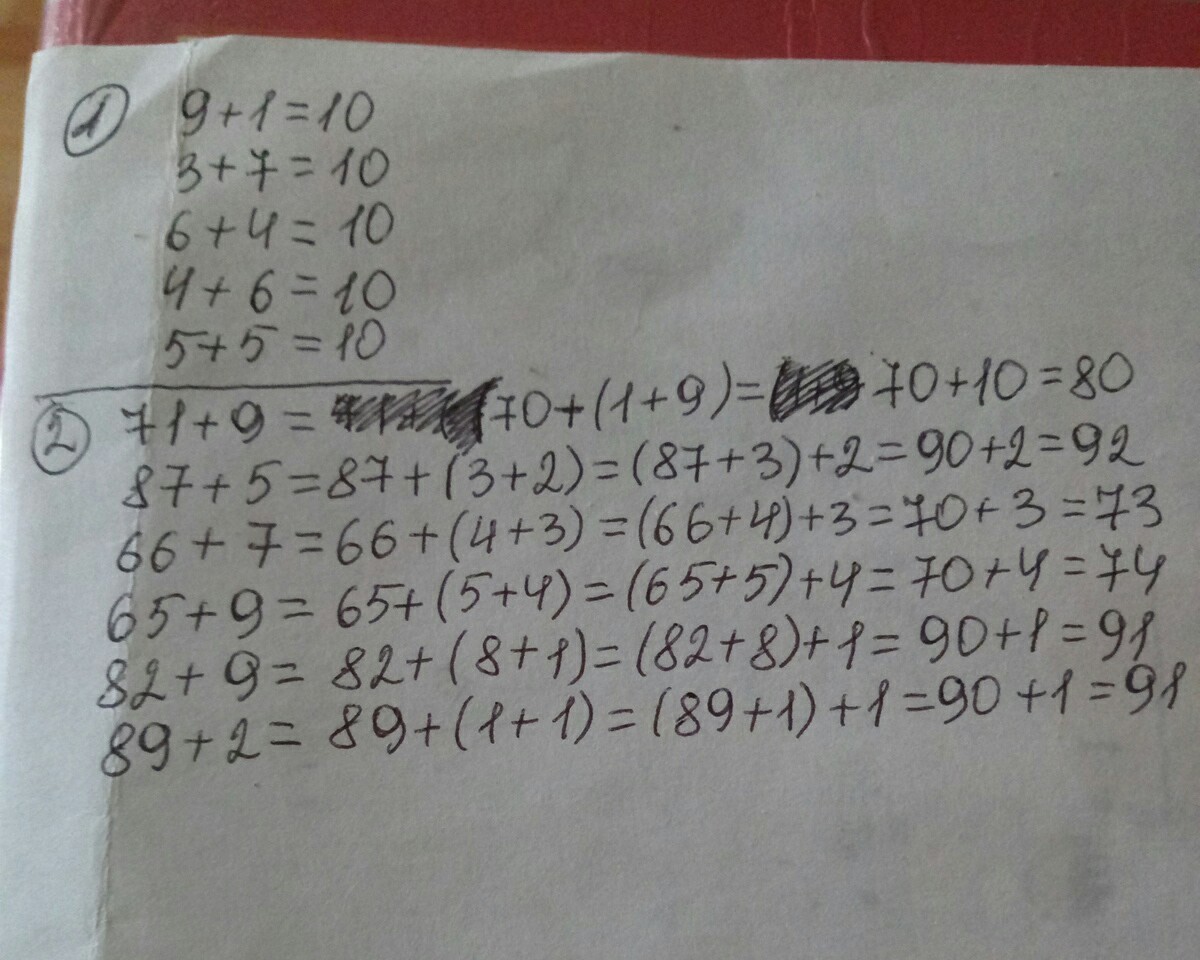 1 9+1=10
3+7=10
6+4=10
4+6=10
5+5=10
2 71+9= 70+(1+9)= 70+10=80
87+5=87+(3+2)=(87+3)+2=90+2=92
66+7=66+(4+3)=(66+4)+3=70+3=73
65+9=65+(5+4)=(65+5)+4=70+4=74
82+9=82+(8+1)=(82+8)+1=90+1=91
89+2=89+(1+1)=(89+1)+1=90+1=91